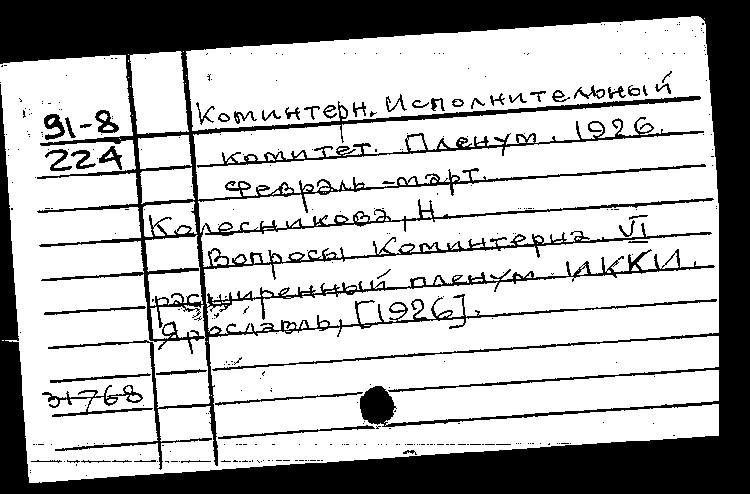 91-8
224
Коминтерн. Исполнительный
комитет. Пленум. 1926.
февраль-март.
Колесникова, Н.
Вопросы Коминтерна. VI
расширенный пленум ИККИ.
Ярославль, [1926].
31768